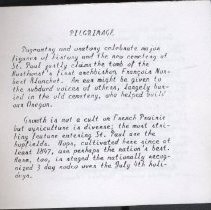 PILGRIMAGE
Pageantry and oratory celebrate major
figures of history and the new cemetery at
St. Paul justly claims the tomb of the
Northwest's first archbishop, François Nor-
bert Blanchet. An ear might be given to
the subdued voices of others, largely bur-
ied in the old cemetery, who helped build
our Oregon.
Growth is not a cult on French Prairie
but agriculture is diverse; the most stri-
king feature entering St. Paul are the
hopfields. Hops, cultivated here since at
least 1847, are perhaps the nation's best.
Here, too, is staged the nationally recog-
nized 3 day rodeo over the July 4th holi-
days.